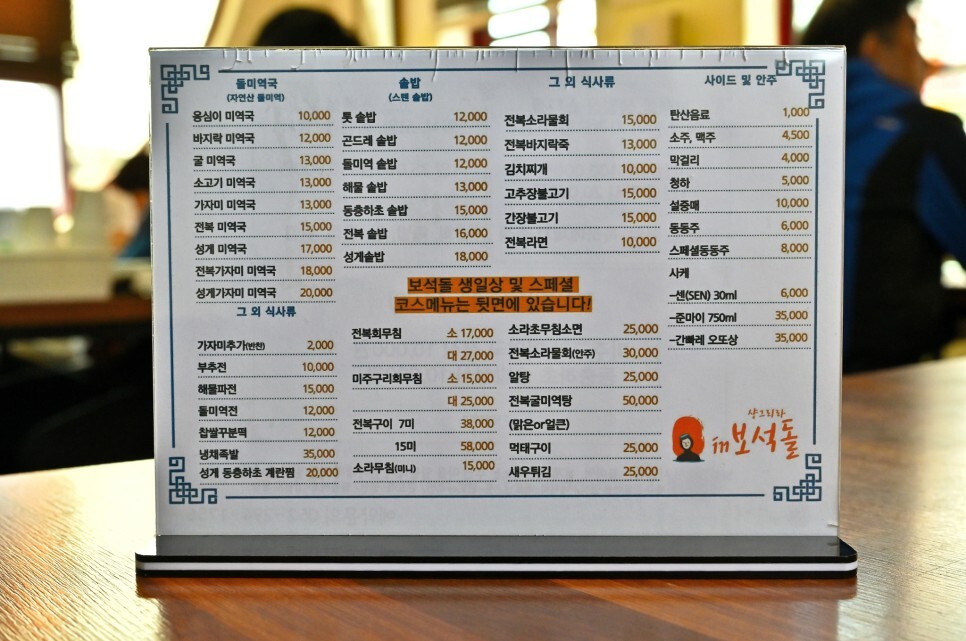 돌미역국
(자연산 돌미역)
옹심이 미역국 10,000
바지락 미역국 12,000
굴 미역국 13,000
소고기 미역국 13,000
가자미 미역국 13,000
전복 미역국 15,000
성게 미역국 17,000
전복가자미 미역국 18,000
성게가자미 미역국 20,000
그 외 식사류
가자미추가(반찬) 2,000
부추전 10,000
해물파전 15,000
돌미역전 12,000
찹쌀꾸분떡 12,000
냉채족발 35,000
성게 동충하초 계란찜 20,000
솥밥
(스텐 솥밥)
톳 솥밥 12,000
곤드레 솥밥 12,000
돌미역 솥밥 12,000
해물 솥밥 13,000
동충하초 솥밥 15,000
전복 솥밥 16,000
성게솥밥 18,000
그 외 식사류
전복소라물회 15,000
전복바지락죽 13,000
김치찌개 10,000
고추장불고기 15,000
간장불고기 15,000
전복라면 10,000
보석돌 생일상 및 스페셜
코스메뉴는 뒷면에 있습니다!
전복회무침 소 17,000
대 27,000
미주구리회무침 소 15,000
대 25,000
전복구이 7미 38,000
15미 58,000
소라무침(미니) 15,000
소라초무침소면 25,000
전복소라물회(안주) 30,000
알탕 25,000
전복굴미역탕 50,000
(맑은or얼큰)
먹태구이 25,000
새우튀김 25,000
사이드 및 안주
탄산음료 1,000
소주, 맥주 4,500
막걸리 4,000
청하 5,000
설중매 10,000
동동주 6,000
스페셜동동주 8,000
사케
-센(SEN) 30ml 6,000
-준마이 750ml 35,000
-간빠레 오또상 35,000
샹그리라
in 보석돌